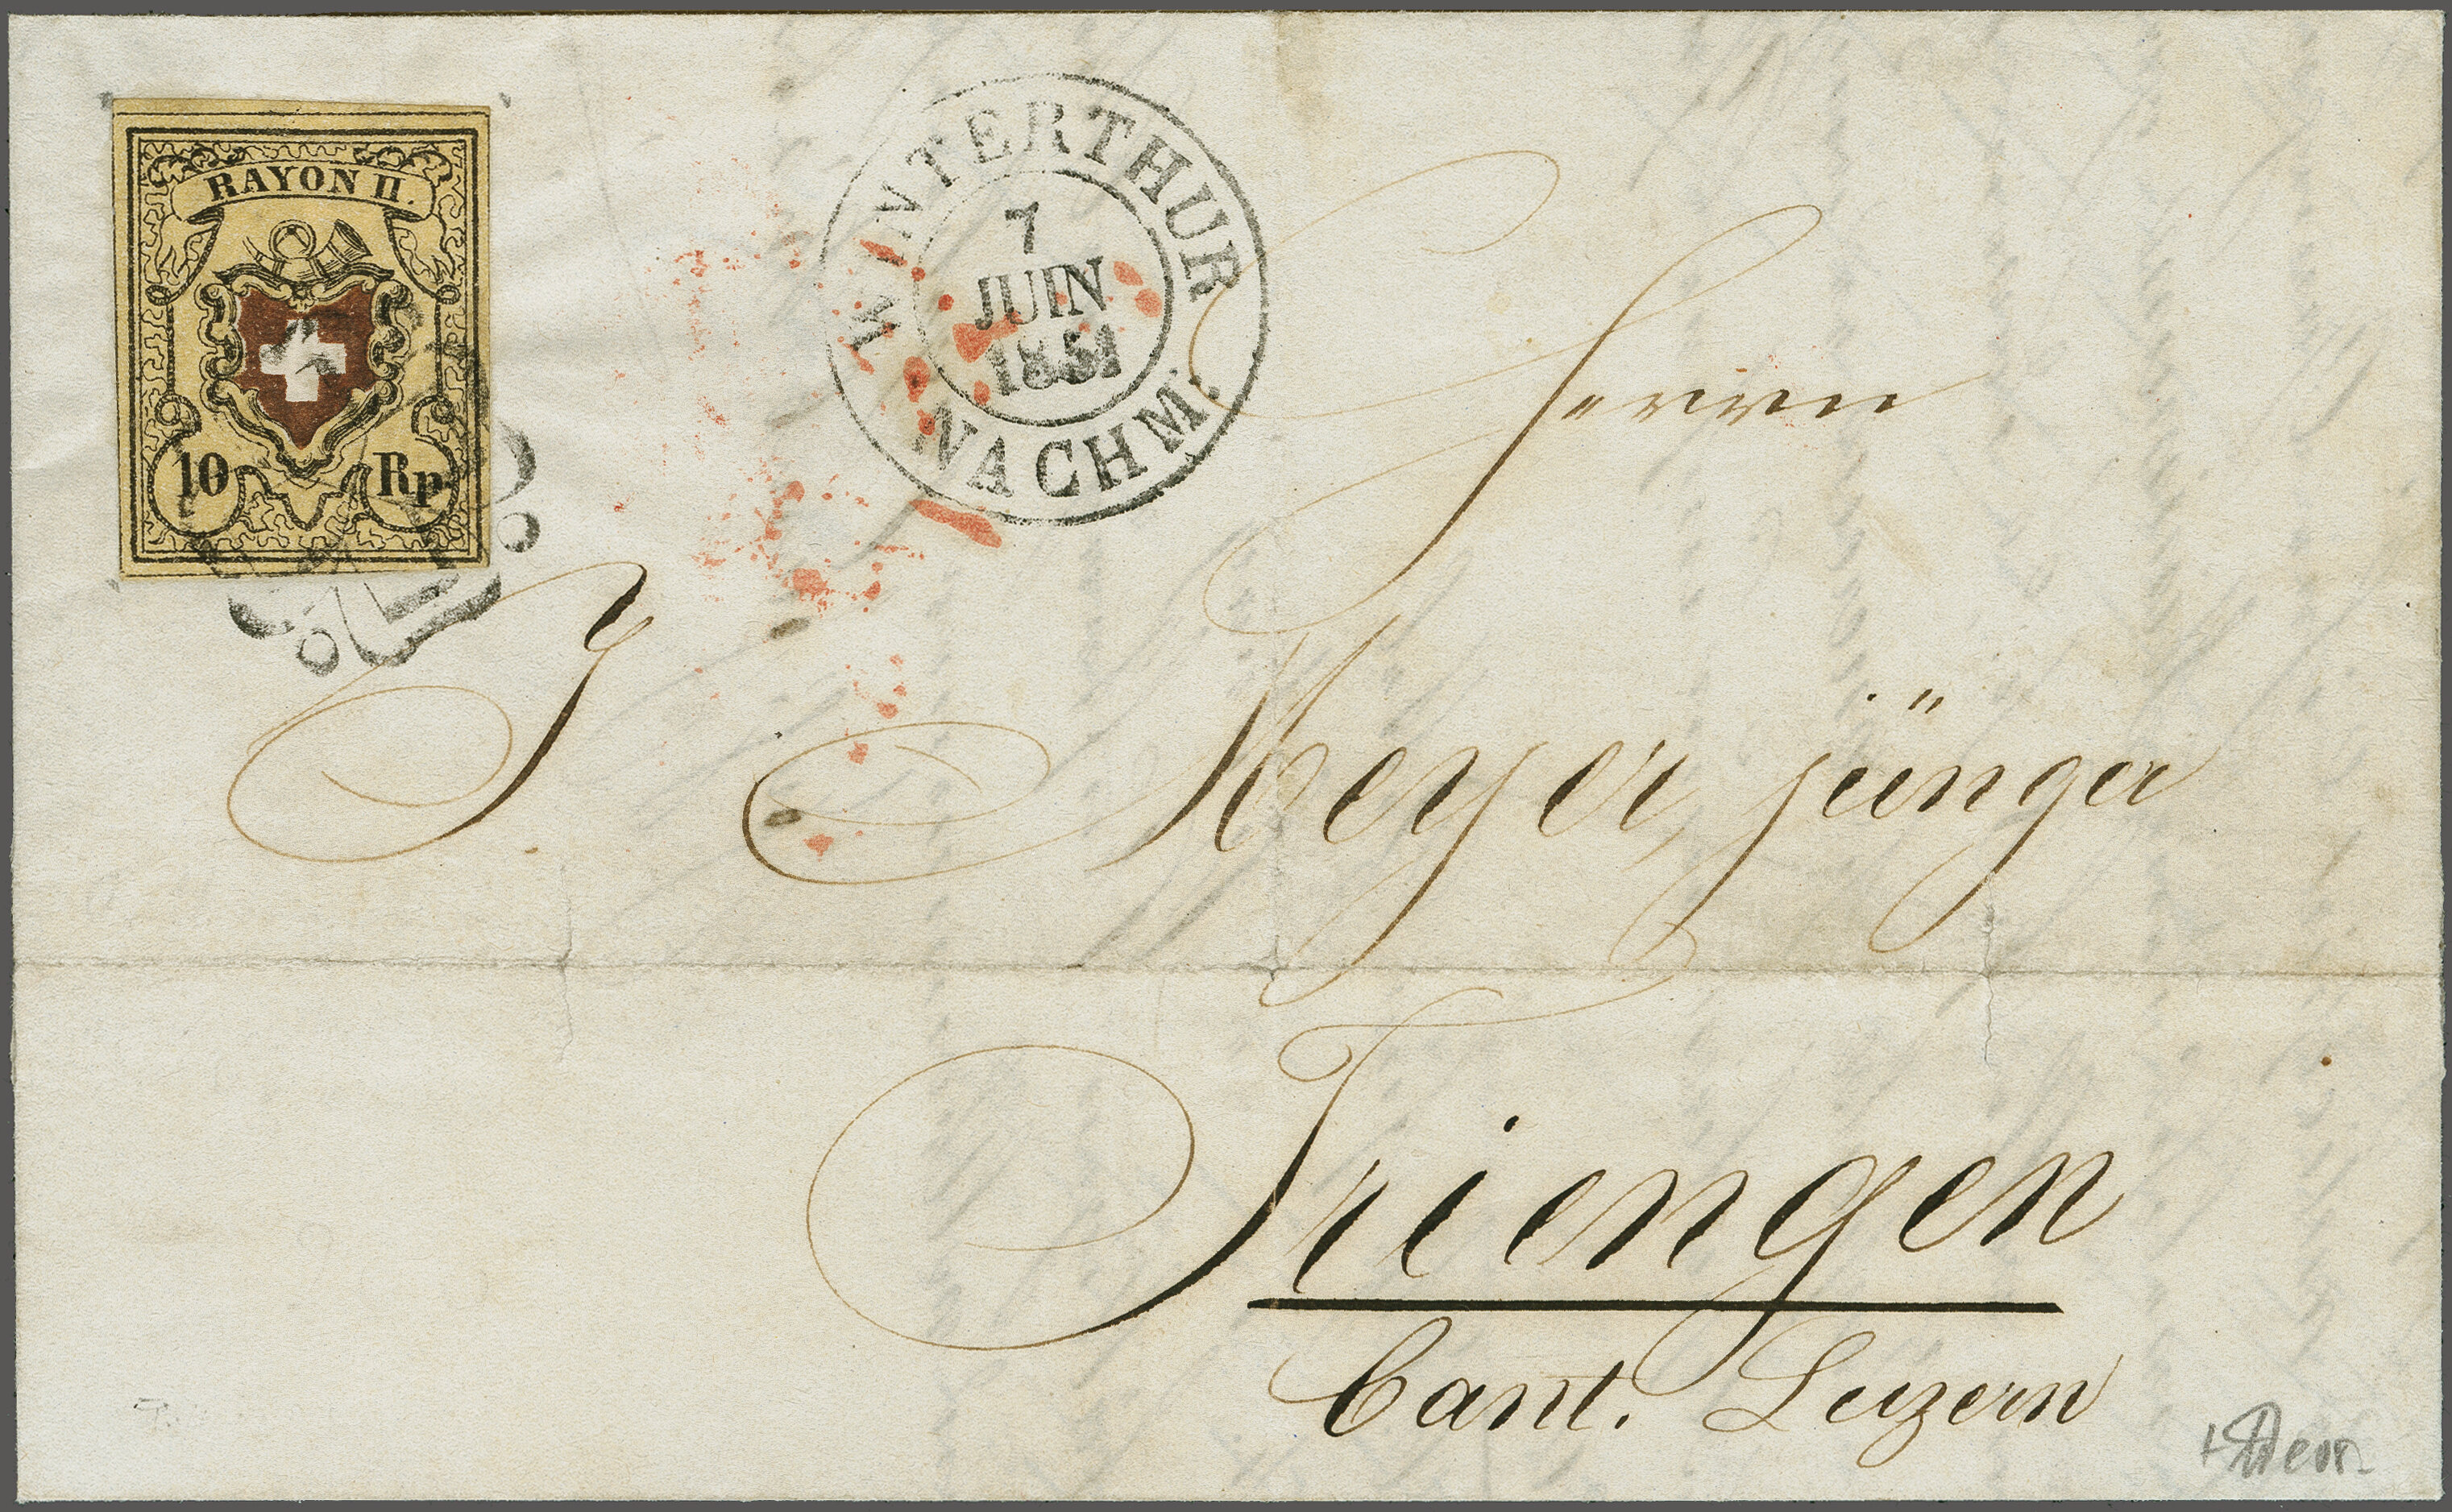 RAYON II.
10 Rp
WINTERTHUR
7
JUIN
1851
NACHM.
Herrn
J Meyer, jünger
Triengen
Cant. Luzern